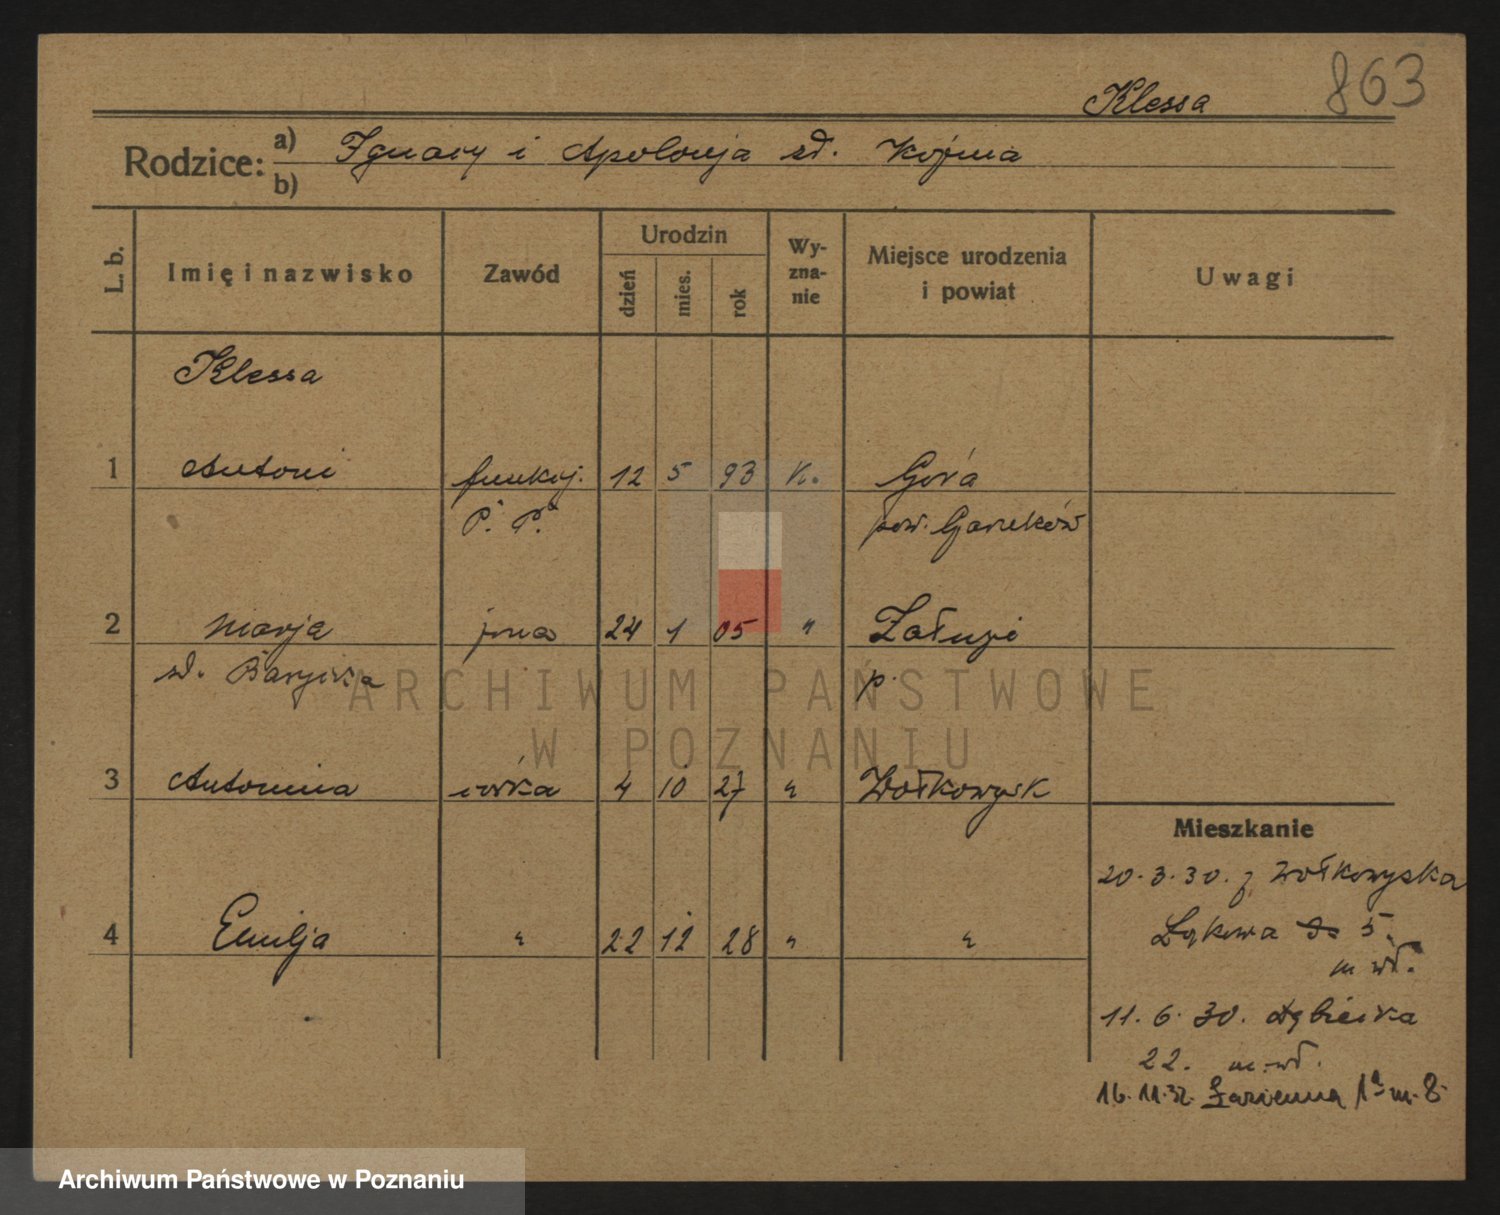 863
Klessa
Rodzice: a) Ignacy i Apolonja zd. Kozma
b)
L. b. Imię i nazwisko Zawód Urodzin dzień mies. rok Wyznanie Miejsce urodzenia i powiat Uwagi
Klessa
1 Antoni funkcj. 12 5 93 K. Góra
P. P. pow.
2 Marja żona 24 1 05 "
zd. p.
3 Antonina córka 4 10 27 " Wołkowysk
4 Emilja " 22 12 28 " "
Mieszkanie
20.3.30. z Wołkowyska
Łąkowa 5.
m wł.
11.6.30. Dębiecka
22. m. wł.
16.11.32. Łazienna 1a m. 8
ARCHIWUM PAŃSTWOWE
W POZNANIU
Archiwum Państwowe w Poznaniu